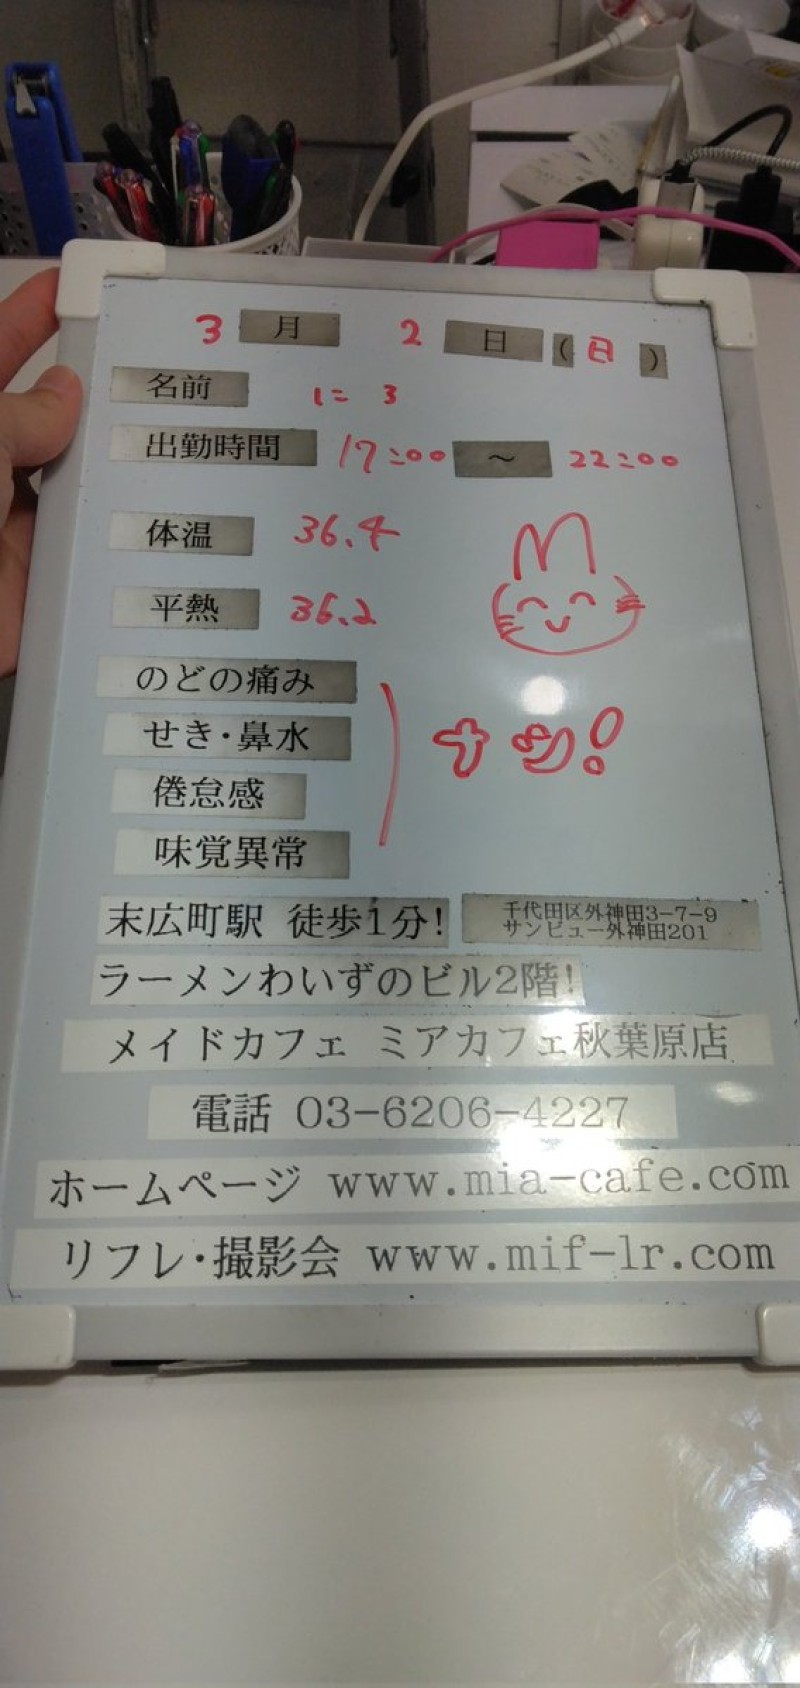 3 月 2 日 (日)
名前 に 3
出勤時間 17:00 ~ 22:00
体温 36.4
平熱 36.2
のどの痛み
せき・鼻水
倦怠感
味覚異常
ナシ!
末広町駅 徒歩1分! 千代田区外神田3-7-9
サンビュー外神田201
ラーメンわいずのビル2階!
メイドカフェ ミアカフェ秋葉原店
電話 03-6206-4227
ホームページ www.mia-cafe.com
リフレ・撮影会 www.mif-lr.com